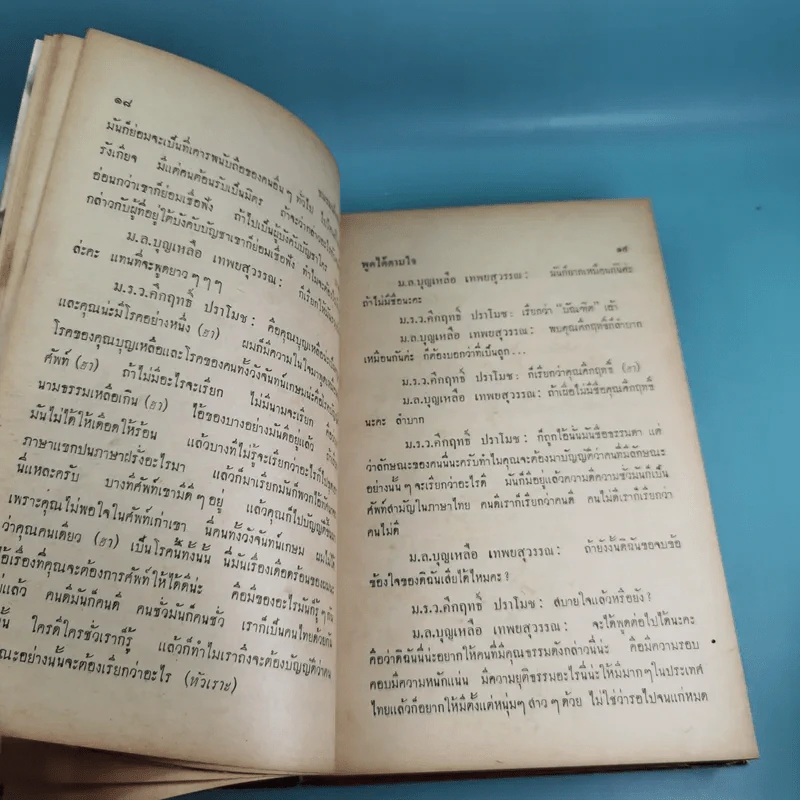 ๑๘
มันก็ย่อมจะเป็นที่เคารพนับถือของคนอื่น ๆ ทั่วไป
รังเกียจ มีแต่คนต้อนรับเป็นมิตร ถ้าจะว่ากล่าว
อ่อนกว่าเขาก็ย่อมเชื่อฟัง ถ้าไปเป็นผู้บังคับบัญชาใคร
กล่าวกับผู้ที่อยู่ใต้บังคับบัญชาเขาก็ย่อมเชื่อฟัง ทำไมจะ
ม.ล.บุญเหลือ เทพยสุวรรณ: ก็เรียกให้มัน
ล่ะคะ แทนที่จะพูดยาว ๆ ๆ ๆ
ม.ร.ว.คึกฤทธิ์ ปราโมช: คือคุณบุญเหลือ
และคุณน่ะมีโรคอย่างหนึ่ง (ฮา) ผมก็มีความในใจมา
โรคของคุณบุญเหลือและโรคของคนทั้งวังจันทน์เกษมน่ะคือโรค
ศัพท์ (ฮา) ถ้าไม่มีอะไรจะเรียก ไม่มีนามจะเรียก
นามธรรมเหลือเกิน (ฮา) ไอ้ของบางอย่างมันดีอยู่แล้ว
มันไม่ได้ให้เดือดให้ร้อน แล้วบางทีไม่รู้จะเรียกว่าอะไรก็ไป
ภาษาแขกปนภาษาฝรั่งอะไรมา แล้วก็มาเรียกมันก็พวกไอ้
นี่แหละครับ บางทีศัพท์เขามีดี ๆ อยู่ แล้วคุณก็ไปบัญญัติ
เพราะคุณไม่พอใจในศัพท์เก่าเขา นี่คนทั้งวังจันทน์เกษม
ว่าคุณคนเดียว (ฮา) เป็นโรคนี้ทั้งนั้น นี่มันเรื่องเดือดร้อนของ
อ้เรื่องที่คุณจะต้องการศัพท์ให้ได้ดีน่ะ คือมีของอะไรมันก็รู้ ๆ กัน
แล้ว คนดีมันก็คนดี คนชั่วมันก็คนชั่ว เราก็เป็นคนไทยด้วยกัน
นั้น ใครดีใครชั่วเราก็รู้ แล้วก็ทำไมเราถึงจะต้องบัญญัติว่าคน
ณะอย่างนั้นจะต้องเรียกว่าอะไร (หัวเราะ)
พูดได้ตามใจ ๑๙
ม.ล.บุญเหลือ เทพยสุวรรณ: มันก็ยากเหมือนกันค่ะ
ถ้าไม่มีชื่อนะคะ
ม.ร.ว.คึกฤทธิ์ ปราโมช: เรียกว่า "บัณฑิต" เช้า
ม.ล.บุญเหลือ เทพยสุวรรณ: พบคุณคึกฤทธิ์ก็ลำบาก
เหมือนกันค่ะ ก็ต้องบอกว่าที่เป็นถูก...
ม.ร.ว.คึกฤทธิ์ ปราโมช: ก็เรียกว่าคุณคึกฤทธิ์ (ฮา)
ม.ล.บุญเหลือ เทพยสุวรรณ: ถ้าเผื่อไม่มีชื่อคุณคึกฤทธิ์
นะคะ ลำบาก
ม.ร.ว.คึกฤทธิ์ ปราโมช: ก็ถูกไอ้นั่นมันชื่อธรรมดา แต่
ว่าลักษณะของคนนี่นะครับทำไมคุณจะต้องมาบัญญัติว่าคนที่มีลักษณะ
อย่างนั้น ๆ จะเรียกว่าอะไรดี มันก็มีอยู่แล้วความดีความชั่วมันก็เป็น
ศัพท์สามัญในภาษาไทย คนดีเราก็เรียกว่าคนดี คนไม่ดีเราก็เรียกว่า
คนไม่ดี
ม.ล.บุญเหลือ เทพยสุวรรณ: ถ้ายังงั้นดิฉันขอจบข้อ
ข้องใจของดิฉันเสียได้ไหมคะ?
ม.ร.ว.คึกฤทธิ์ ปราโมช: สบายใจแล้วหรือยัง?
ม.ล.บุญเหลือ เทพยสุวรรณ: จะได้พูดต่อไปได้นะคะ
คือว่าดิฉันนี่น่ะอยากให้คนที่มีคุณธรรมดังกล่าวนี่น่ะ คือมีความรอบ
คอบมีความหนักแน่น มีความยุติธรรมอะไรนี่น่ะให้มีมาก ๆ ในประเทศ
ไทยแล้วก็อยากให้มีตั้งแต่หนุ่มๆ สาว ๆ ด้วย ไม่ใช่ว่ารอไปจนแก่หมด